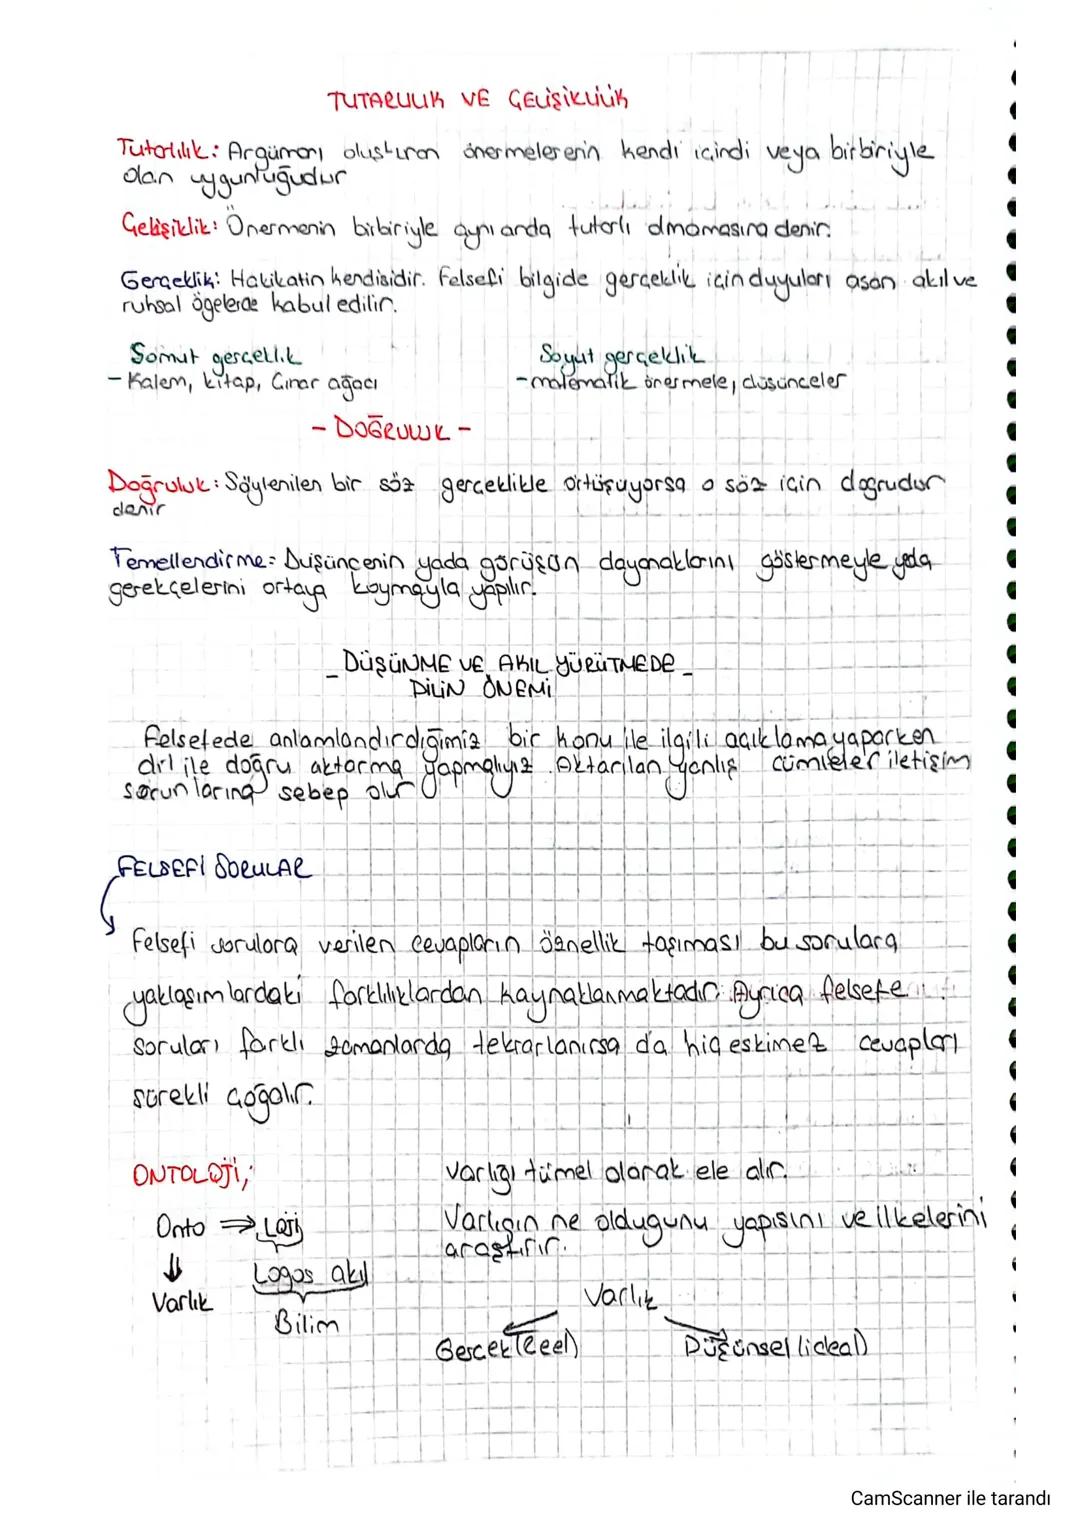 TUTARLILIK VE ÇELİŞİKLİLİK
Tutarlılık: Argümanı oluşturan önermelererin kendi içindi veya birbiriyle
olan uygunluğudur
Çelişiklik: Önermenin birbiriyle aynı anda tutarlı olmamasına denir.
Gerçeklik: Hakikatin kendisidir. Felsefi bilgide gerçeklik için duyuları aşan akıl ve
ruhsal ögelerde kabul edilir.
Somut gerçeklik
Soyut gerçeklik
- Kalem, kitap, Çınar ağacı
- matematik önermele, düşünceler
- DOĞRULUK -
Doğruluk: Söylenilen bir söz gerçeklikle örtüşüyorsa o söz için dogrudur
denir
Temellendirme: Düşüncenin yada görüşün dayanaklarını göstermeyle yada
gerekçelerini ortaya koymayla yapılır.
_ DÜŞÜNME VE AKIL YÜRÜTMEDE _
DİLİN ÖNEMİ
Felsefede anlamlandırdığımız bir konu ile ilgili açıklama yaparken
dil ile doğru aktarma yapmalıyız. Aktarılan yanlış cümleler iletişim
sorunlarına sebep olur
FELSEFİ SORULAR
Felsefi sorulara verilen cevapların öznellik taşıması bu sorulara
yaklaşımlardaki farklılıklardan kaynaklanmaktadır. Ayrıca felsefe
soruları farklı zamanlarda tekrarlanırsa da hiç eskimez cevapları
sürekli çoğalır.
ONTOLOJİ;
varlığı tümel olarak ele alır.
Onto ⇒ Loji
Varlıgın ne oldugunu yapısını ve ilkelerini
araştırır.
⇓
Logos akıl
Varlık
Varlık
Bilim
Gerçek (Reel)
Düşünsel (ideal)
CamScanner ile tarandı